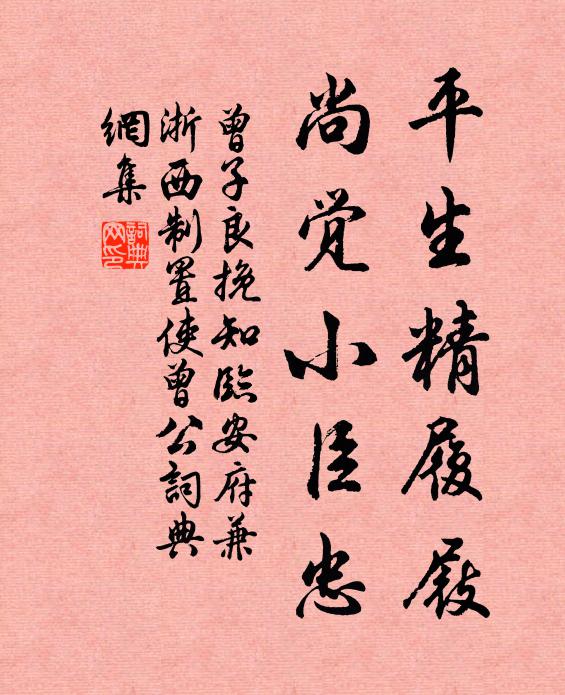 平生精履屐
尚觉小臣忠
曾子良挽知臨安府兼
浙西制置使曾公詞典
網集
詞典
网印